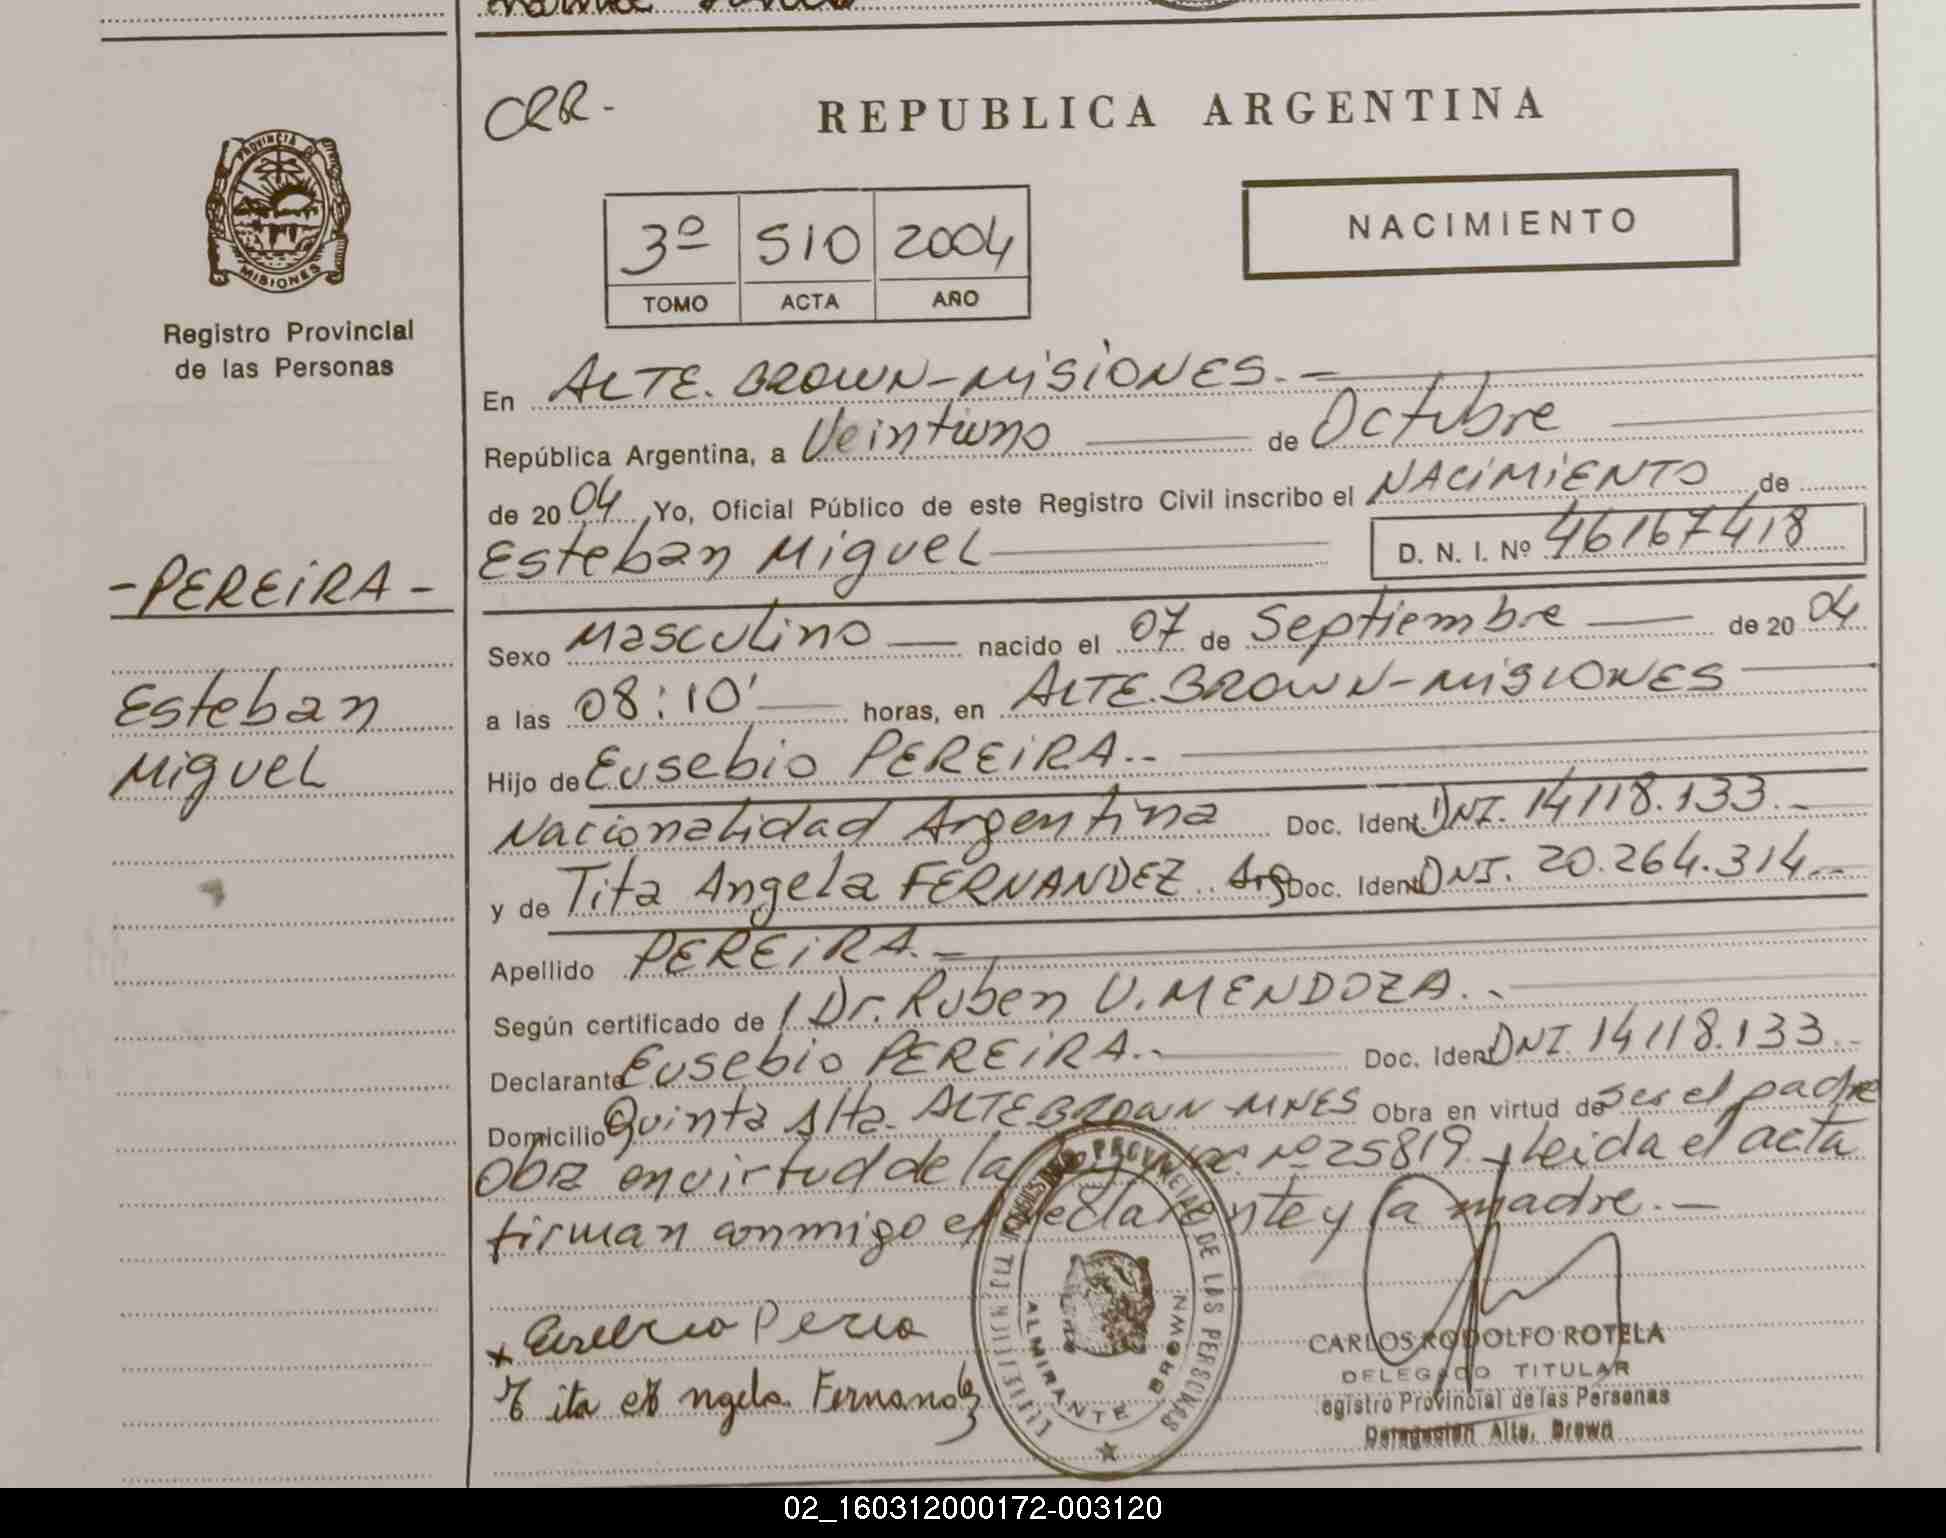 CRR-
REPUBLICA ARGENTINA
PROVINCIA DE MISIONES
Registro Provincial
de las Personas
3º 510 2004
TOMO ACTA AÑO
NACIMIENTO
En ALTE. BROWN-MISIONES.-
República Argentina, a Veintiuno de Octubre
de 2004 Yo, Oficial Público de este Registro Civil inscribo el NACIMIENTO de
Esteban Miguel D. N. I. Nº 46167418
-PEREIRA-
Esteban
Miguel
Sexo Masculino nacido el 07 de Septiembre de 2004
a las 08:10' horas, en ALTE.BROWN-MISIONES
Hijo de Eusebio PEREIRA.-
Nacionalidad Argentina Doc. Ident. DNI. 14118.133.-
y de Tita Angela FERNANDEZ. Arg Doc. Ident. DNI. 20.264.314.-
Apellido PEREIRA.-
Según certificado de Dr. Ruben V. MENDOZA.-
Declarante Eusebio PEREIRA.- Doc. Ident. DNI. 14118.133.-
Domicilio Quinta Alta. ALTE BROWN-MNES Obra en virtud de Ser el padre
Obra en virtud de la Nº 25819. Leida el acta
firman conmigo el declarante y la madre.-
x Eusebio Perea
Tita Angela Fernandez
PROVINCIAL DE LAS PERSONAS
ALMIRANTE BROWN
CARLOS RODOLFO ROTELA
DELEGADO TITULAR
egistro Provincial de las Personas
Delegación Alte. Brown
02_160312000172-003120